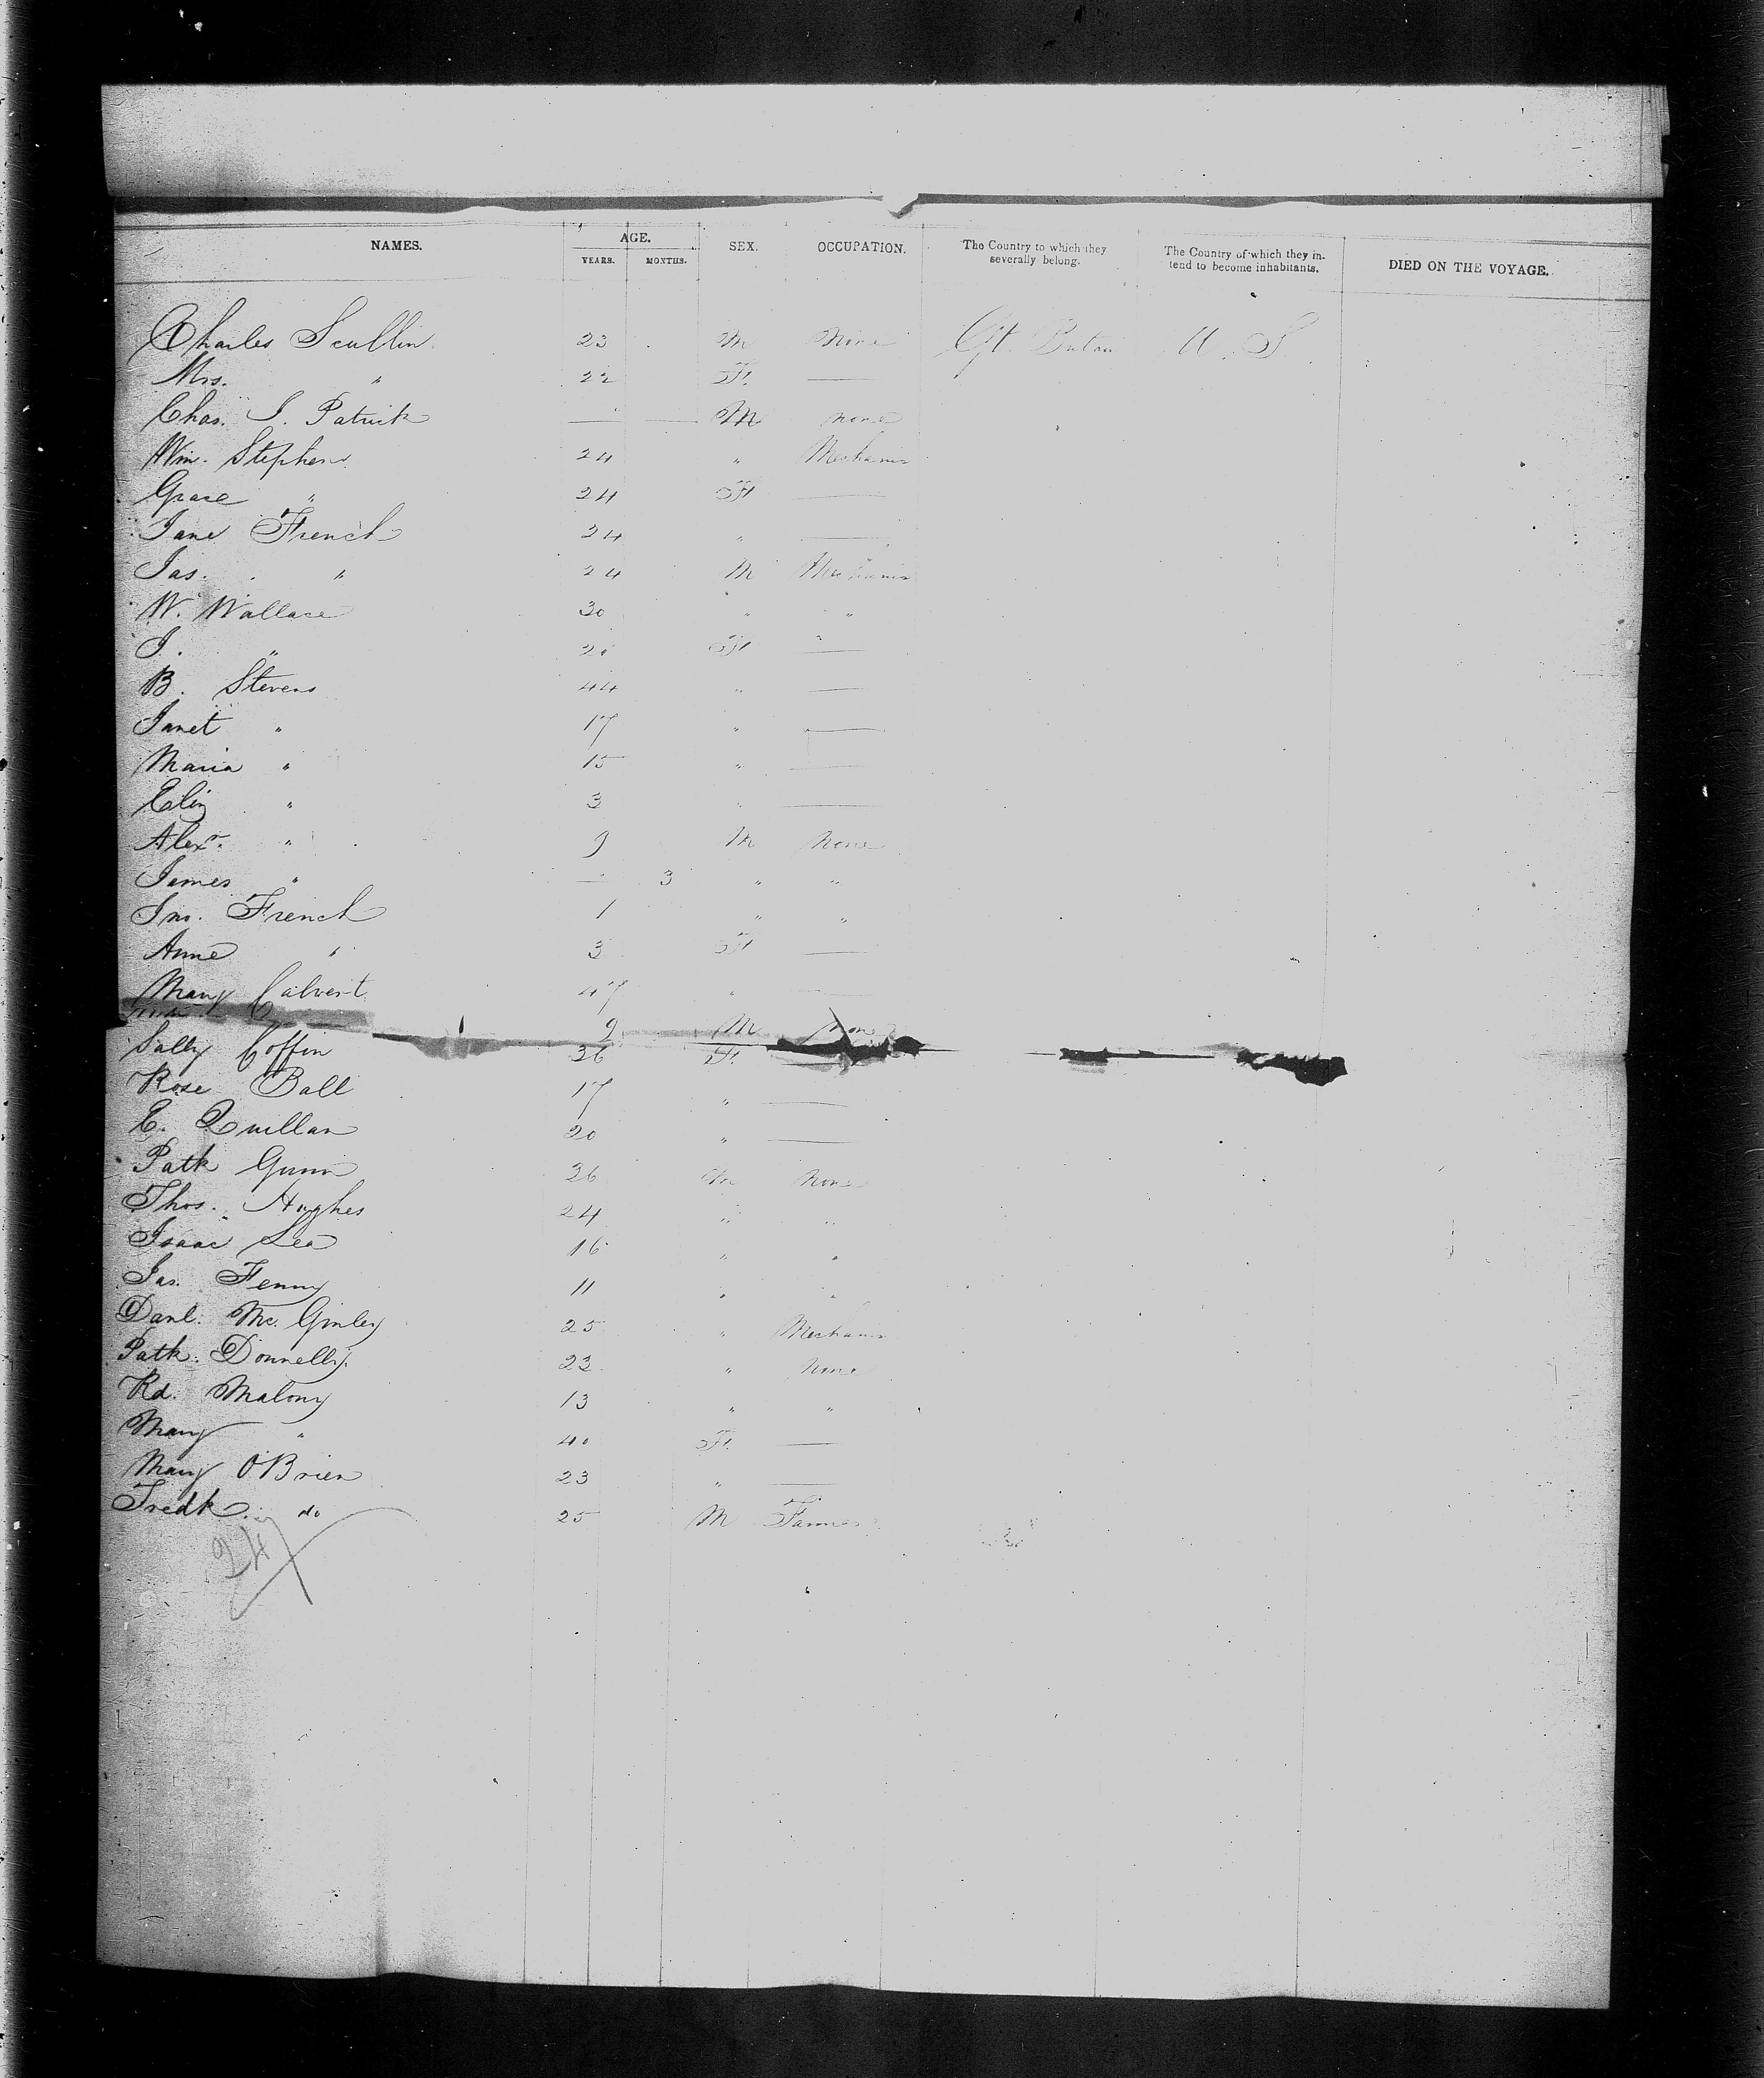 NAMES. AGE. SEX. OCCUPATION. The Country to which they severally belong. The Country of which they intend to become inhabitants. DIED ON THE VOYAGE.
YEARS. MONTHS.
Charles Scullin 23 M None Gt. Britain U. S
Mrs. " 22 F. —
Chas. S. Patrick — — M none
Wm. Stephens 24 " Mechanic
Grace " 24 F —
Jane French 24 " —
Jas. " 24 M Mechanic
W. Wallace 30 " "
J. " 20 F —
B. Stevens 44 " —
Janet " 17 " —
Maria " 15 " —
Eliz " 3 " —
Alexr. " 9 M None
James " — 3 " "
Jno. French 1 " "
Anne " 3 F —
Mary Calvert 47 " —
9 M none
Sally Coffin 36 F. —
Rose Ball 17 " —
E. Quillan 20 " —
Patk Gunn 26 M None
Thos. Hughes 24 " "
Isaac Lea 16 " "
Jas. Fenny 11 " "
Danl. Mc. Ginley 25 " Mechanic
Patk. Donnelly 23 " None
Rd. Malony 13 " "
Mary " 40 F. —
Mary O'Brien 23 " —
Fredk. do 25 M Farmer
24